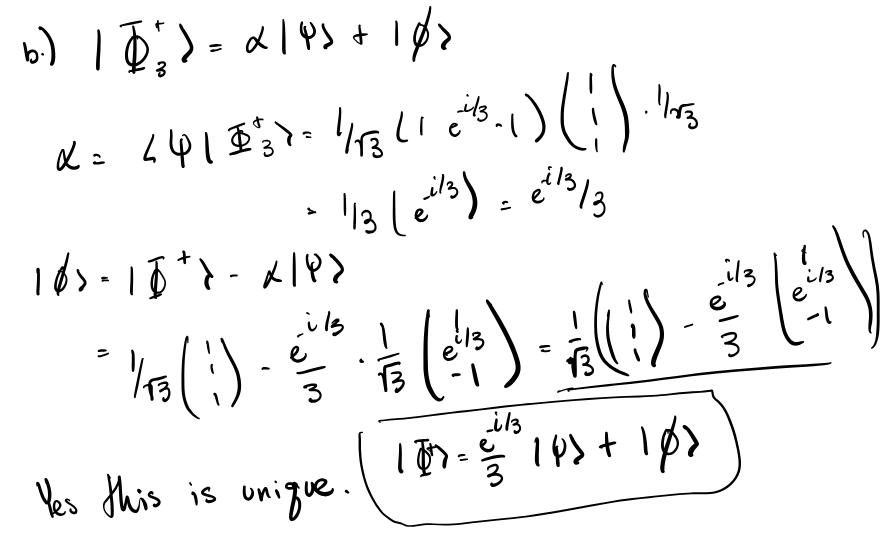 b.) |Φ₃⁺⟩ = α|ψ⟩ + |ϕ⟩
α = ⟨ψ|Φ₃⁺⟩ = 1/√3 (1 e^{-i/3} -1) (1 1 1) · 1/√3
= 1/3 (e^{-i/3}) = e^{-i/3}/3
|ϕ⟩ = |Φ⁺⟩ - α|ψ⟩
= 1/√3 (1 1 1) - e^{-i/3}/3 · 1/√3 (1 e^{i/3} -1) = 1/√3 ((1 1 1) - e^{-i/3}/3 (1 e^{i/3} -1))
Yes this is unique. |Φ⁺⟩ = e^{-i/3}/3 |ψ⟩ + |ϕ⟩